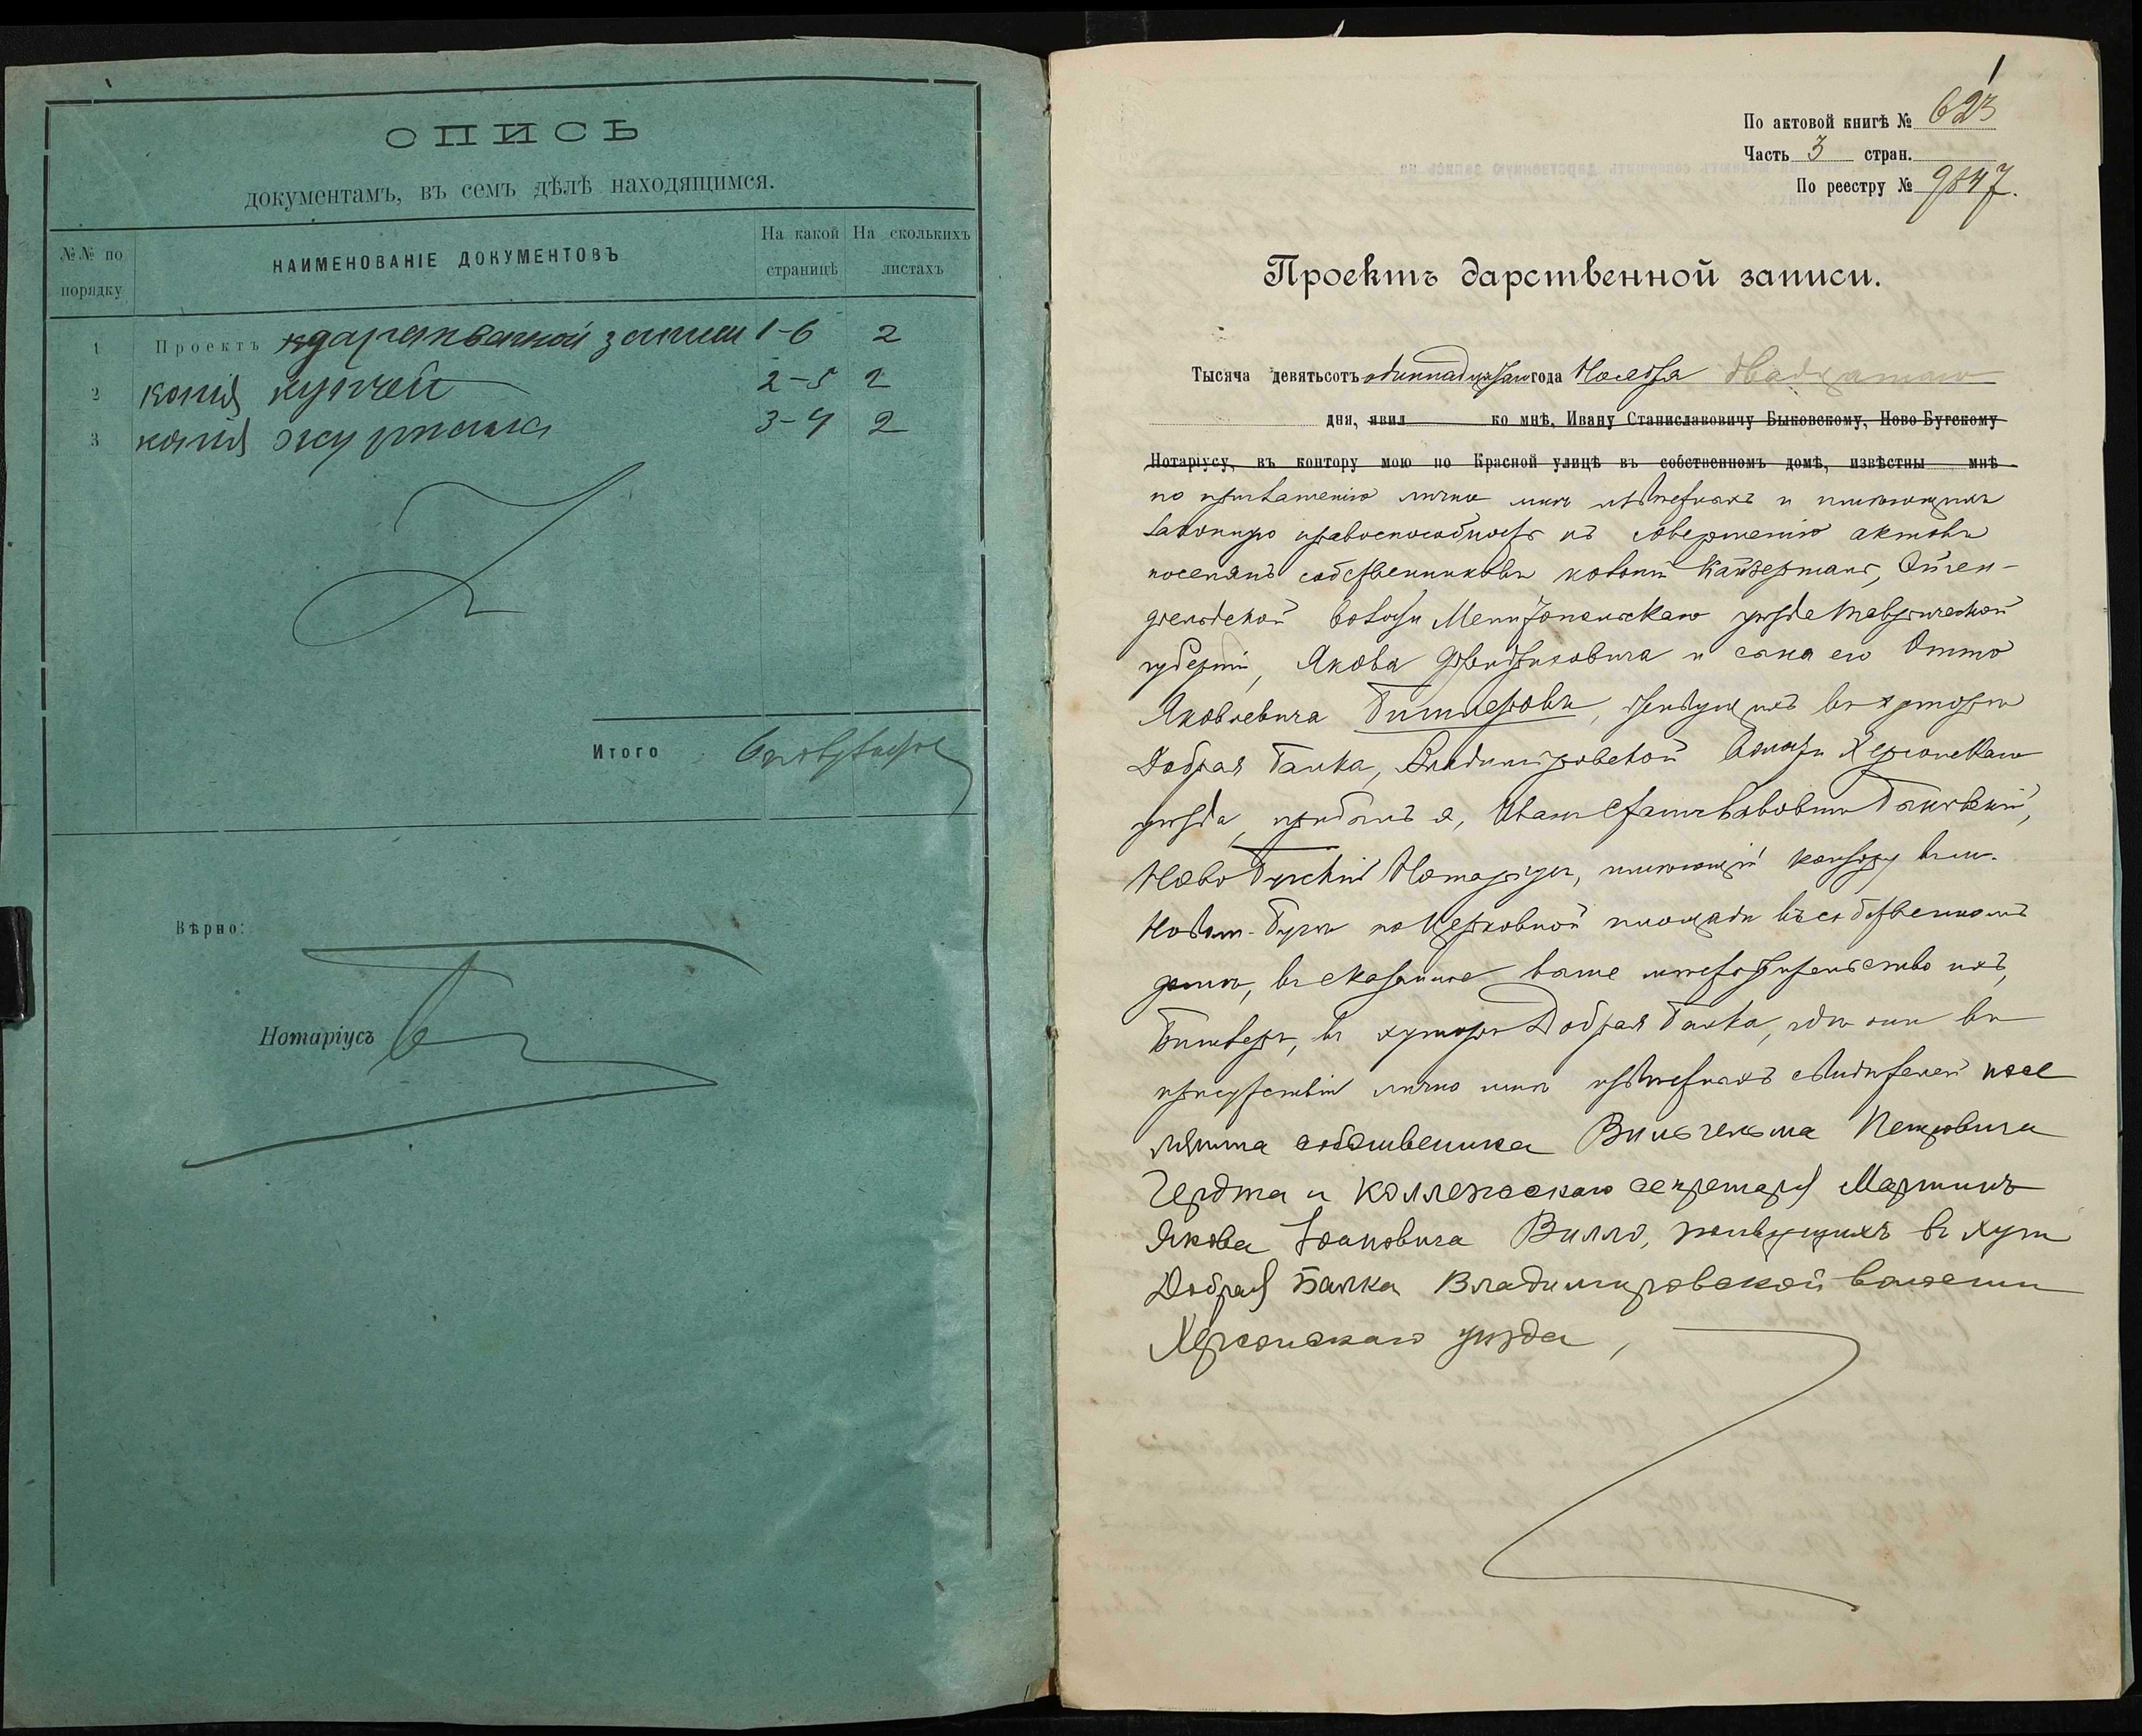 ОПИСЬ
документамъ, въ семъ дѣлѣ находящимся.
№№ по порядку
НАИМЕНОВАНІЕ ДОКУМЕНТОВЪ
На какой страницѣ
На сколькихъ листахъ
1 Проектъ дарственной записи 1-6 2
2 копія купчей 2-5 2
3 копія журнала 3-4 2
Итого
Вѣрно:
Нотаріусъ
1
По актовой книгѣ № 623
Часть 3 стран.
По реестру № 9847.
Проектъ дарственной записи.
Тысяча девятьсотъ одиннадцатаго года Ноября двадцатаго
дня, явил ко мнѣ, Ивану Станиславовичу Быковскому, Ново-Бугскому
Нотаріусу, въ контору мою по Красной улицѣ въ собственномъ домѣ, извѣстны мнѣ
по приглашенію лично мнѣ извѣстныхъ и имѣющихъ
законную правоспособность къ совершенію актовъ
поселянъ собственниковъ колоніи Кайзерталь, Эйген-
фельдской волости Мелитопольскаго уѣзда Таврической
губерніи, Якова Фридриховича и сына его Отто
Яковлевича, живущихъ въ хуторѣ
Добрая Балка, Владимировской волости Херсонскаго
уѣзда, прибылъ я, Иванъ Станиславовичъ Быковскій,
Ново Бугскій Нотаріусъ, имѣющій контору въ м.
Новомъ-Бугѣ по Церковной площади въ собственномъ
домѣ, въ сказанное выше мѣстожительство ихъ,
въ хуторъ Добрая Балка, гдѣ они въ
присутствіи лично мнѣ извѣстныхъ свидѣтелей посе
лянина собственника Вильгельма Петровича
и Коллежскаго секретаря Мартинъ
Якова Іоановича Вилло, живущихъ въ хут
Добрая Балка Владимировской волости
Херсонскаго уѣзда,